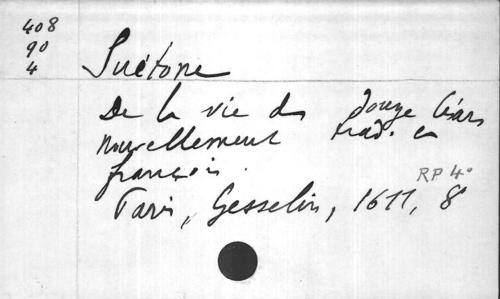 408
90
4
Suétone
De la vie des douze Césars
nouvellement trad. en
françois.
RP 4°
Paris, Gesselin, 1611, 8°